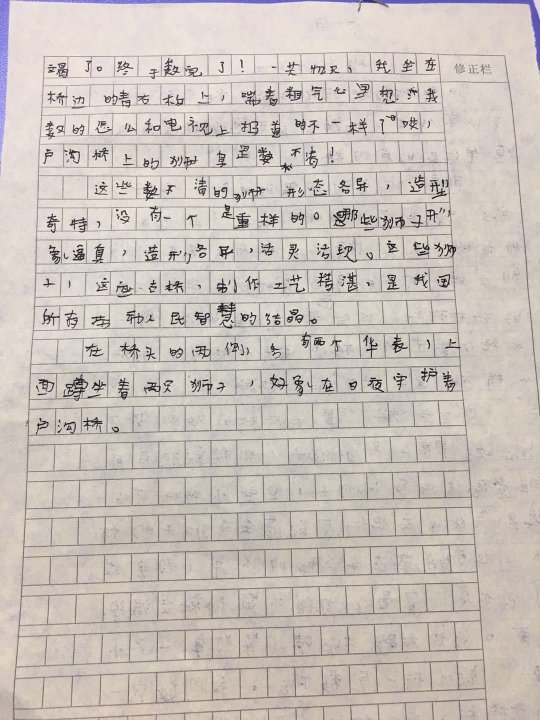 塌了。终于数完了！一共切只，我坐在
修正栏
桥边的青石板上，喘着粗气心里想，我
数的怎么和电视上报道的不一样了呢，
卢沟桥上的狮真是数不清！
这些数不清的狮形态各异，造型
奇特，没有一个是重样的。那些狮子形
象逼真，造形各异，活灵活现。这些狮
子，这座古桥，制作工艺精湛，是我国
所有劳动人民智慧的结晶。
在桥头的两侧，各有两个华表，上
面蹲坐着两只狮子，好象在日夜守护着
卢沟桥。